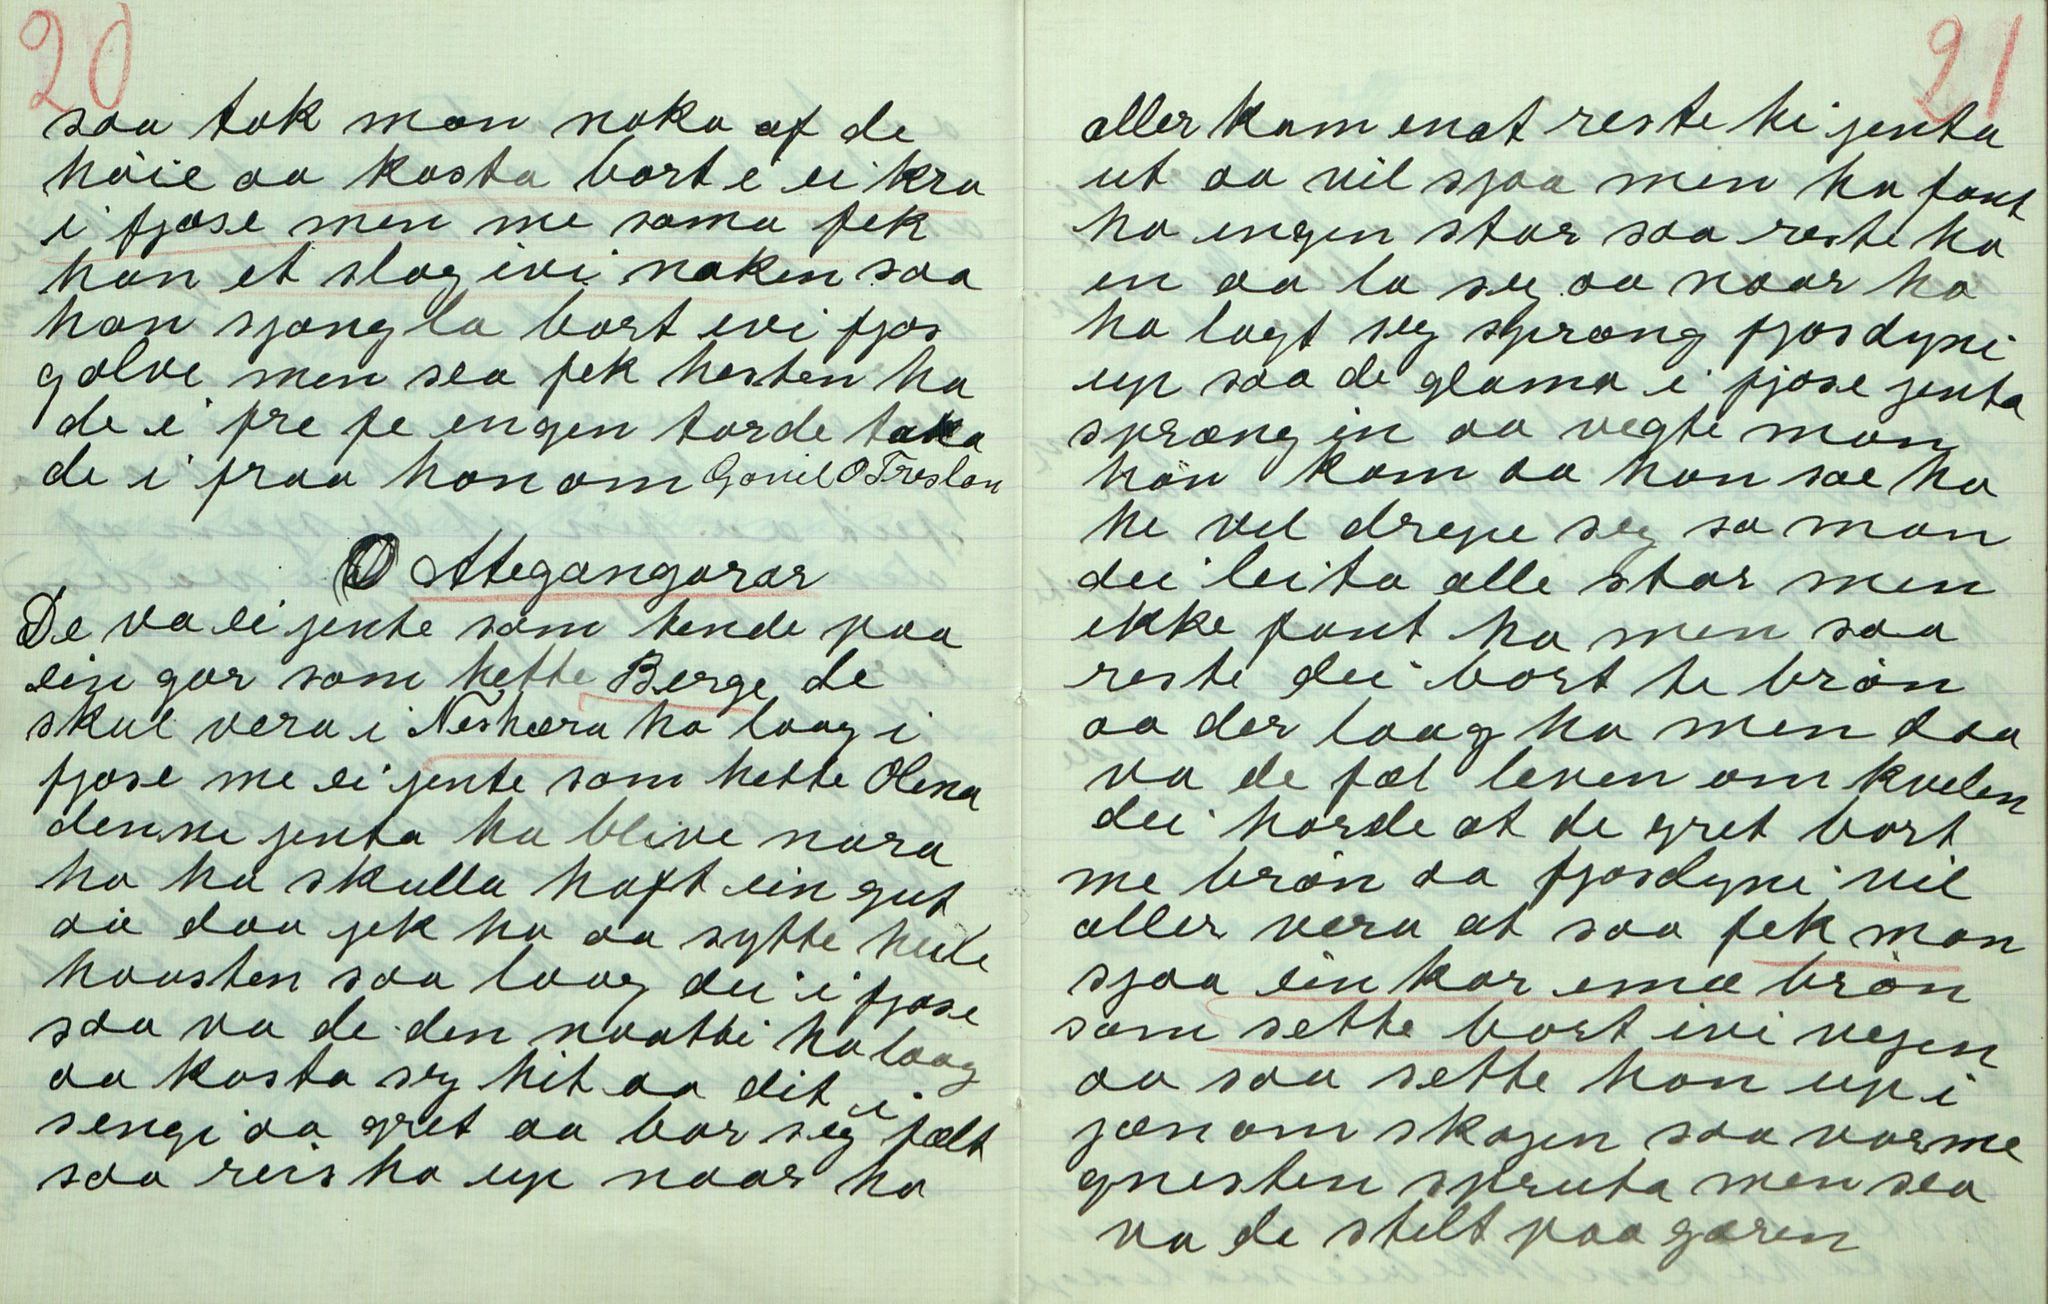 20
saa tok man noko af de
høie aa kasta bort i ei kra
i fjøse men me sama fek
han et slag ivi naken saa
han sjangla bort ivi fjøs
golve men sea fek hesten ha
de i fre fe engen torde taka
de i fraa honom Gonil O Treslan
Ategangarar
De va ei jente som tende paa
ein gar som hette Berge de
skul vera i Neshæra ho laag i
fjøse me ei jente som hette Olena
denne jenta ha blive nara
ho ha skulla haft ein gut
aa daa gjek ho aa sytte heile
haasten saa laag dei i fjøse
saa va de den naatti ho laag
aa kasta seg hit aa dit i
sengi aa gret aa bar seg fælt
saa reis ho up naar ho
21
aller kom enat reste hi jenta
ut aa vil sjaa men ho fant
ho engen star saa reste ho
en aa la seg aa naar ho
ha lagt seg sprang fjøsdyni
up saa de glama i fjøse jenta
sprang in aa vegte man
han kom aa han sae ho
he vel drepe seg sa man
dei leita alle star men
ikke fant ho men saa
reste dei bort te brøn
aa der laag ho men daa
va de fæl leven om kvelen
dei hørde at de gret bort
me brøn aa fjøsdyni vil
aller vera at saa fek man
sjaa ein kar eme brøn
som sette bort ivi vegen
aa saa sette han up i
jønom skogen saa varme
gnesten spruta men sea
va de stelt paa garen